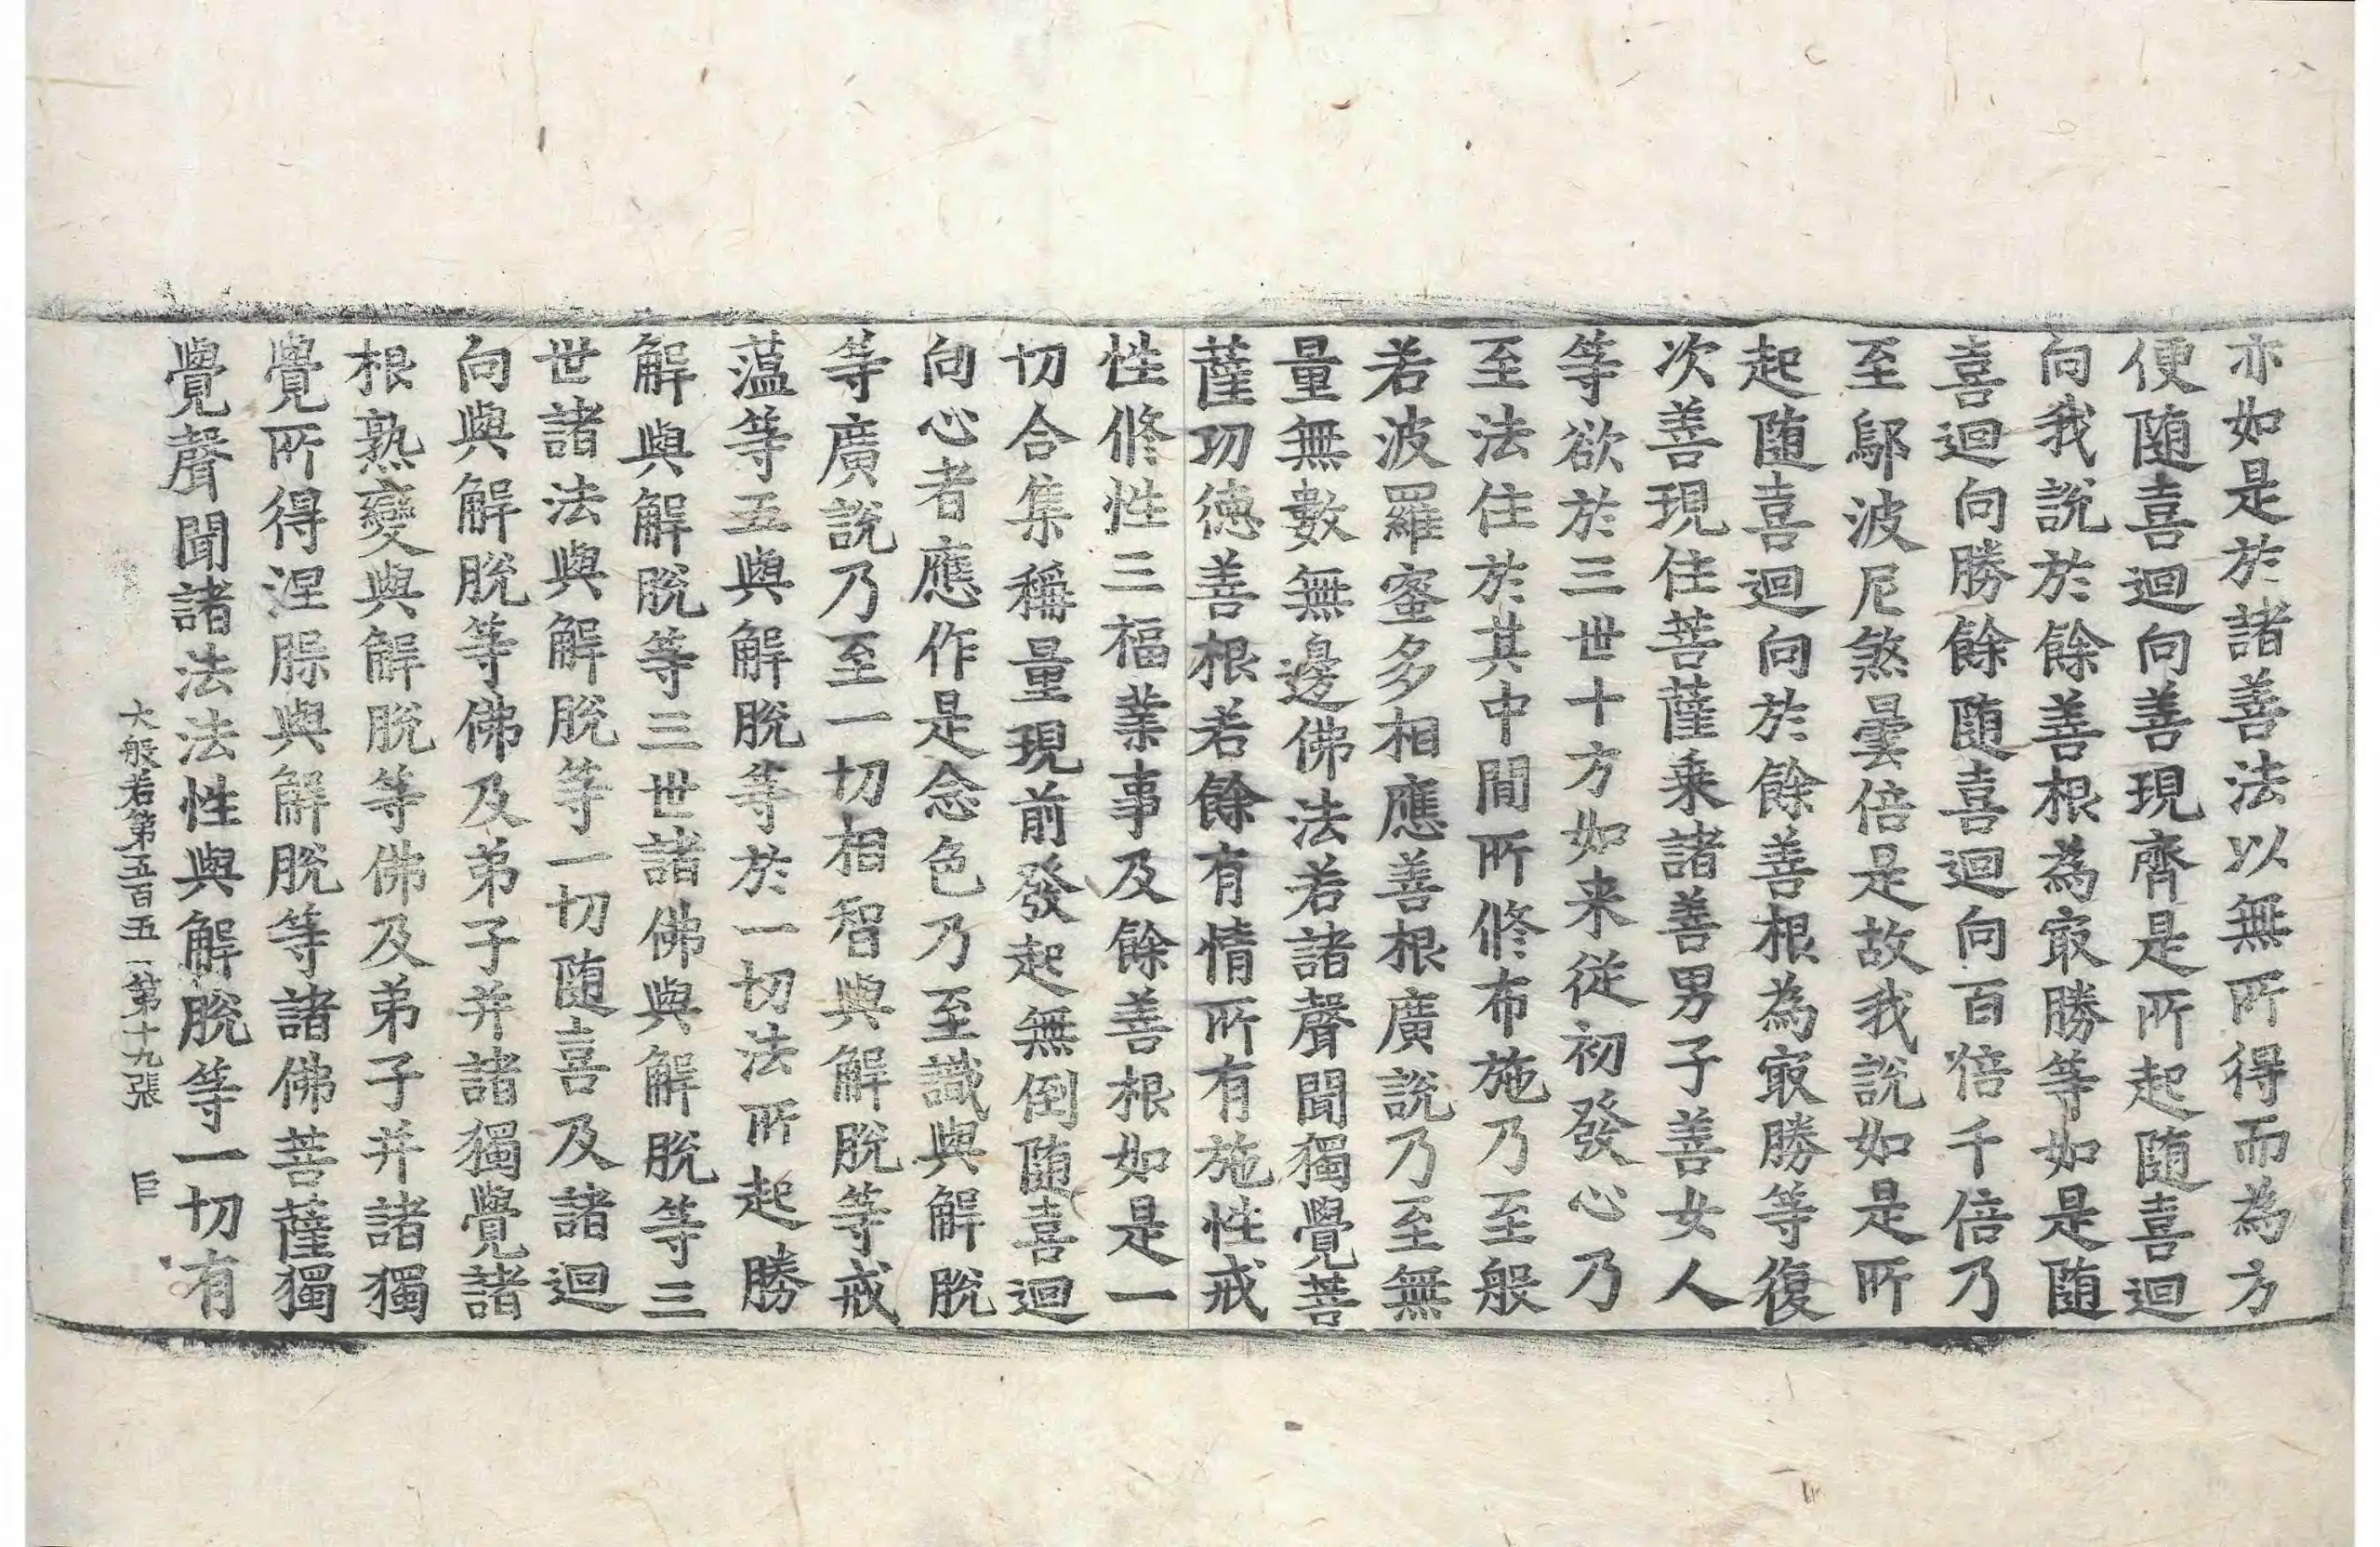 亦如是於諸善法以無所得而為方
便随喜迴向善現齊是所起随喜迴
向我說於餘善根為㝡勝等如是随
喜迴向勝餘随喜迴向百倍千倍乃
至鄔波尼煞曇倍是故我說如是所
起随喜迴向於餘善根為㝡勝等復
次善現住菩薩乗諸善男子善女人
等欲於三世十方如来從初發心乃
至法住於其中間所修布施乃至般
若波羅蜜多相應善根廣說乃至無
量無數無邊佛法若諸聲聞獨覺菩
薩功德善根若餘有情所有施性戒
性修性三福業事及餘善根如是一
切合集稱量現前發起無倒随喜迴
向心者應作是念色乃至識與解脫
等廣說乃至一切相智與解脫等戒
蕰等五與解脫等於一切法所起勝
解與解脫等三世諸佛與解脫等三
世諸法與解脫等一切随喜及諸迴
向與解脫等佛及弟子并諸獨覺諸
根熟變與解脫等佛及弟子并諸獨
覺所得涅槃與解脫等諸佛菩薩獨
覺聲聞諸法法性與解脫等一切有
大般若第五百五一第十九張 巨